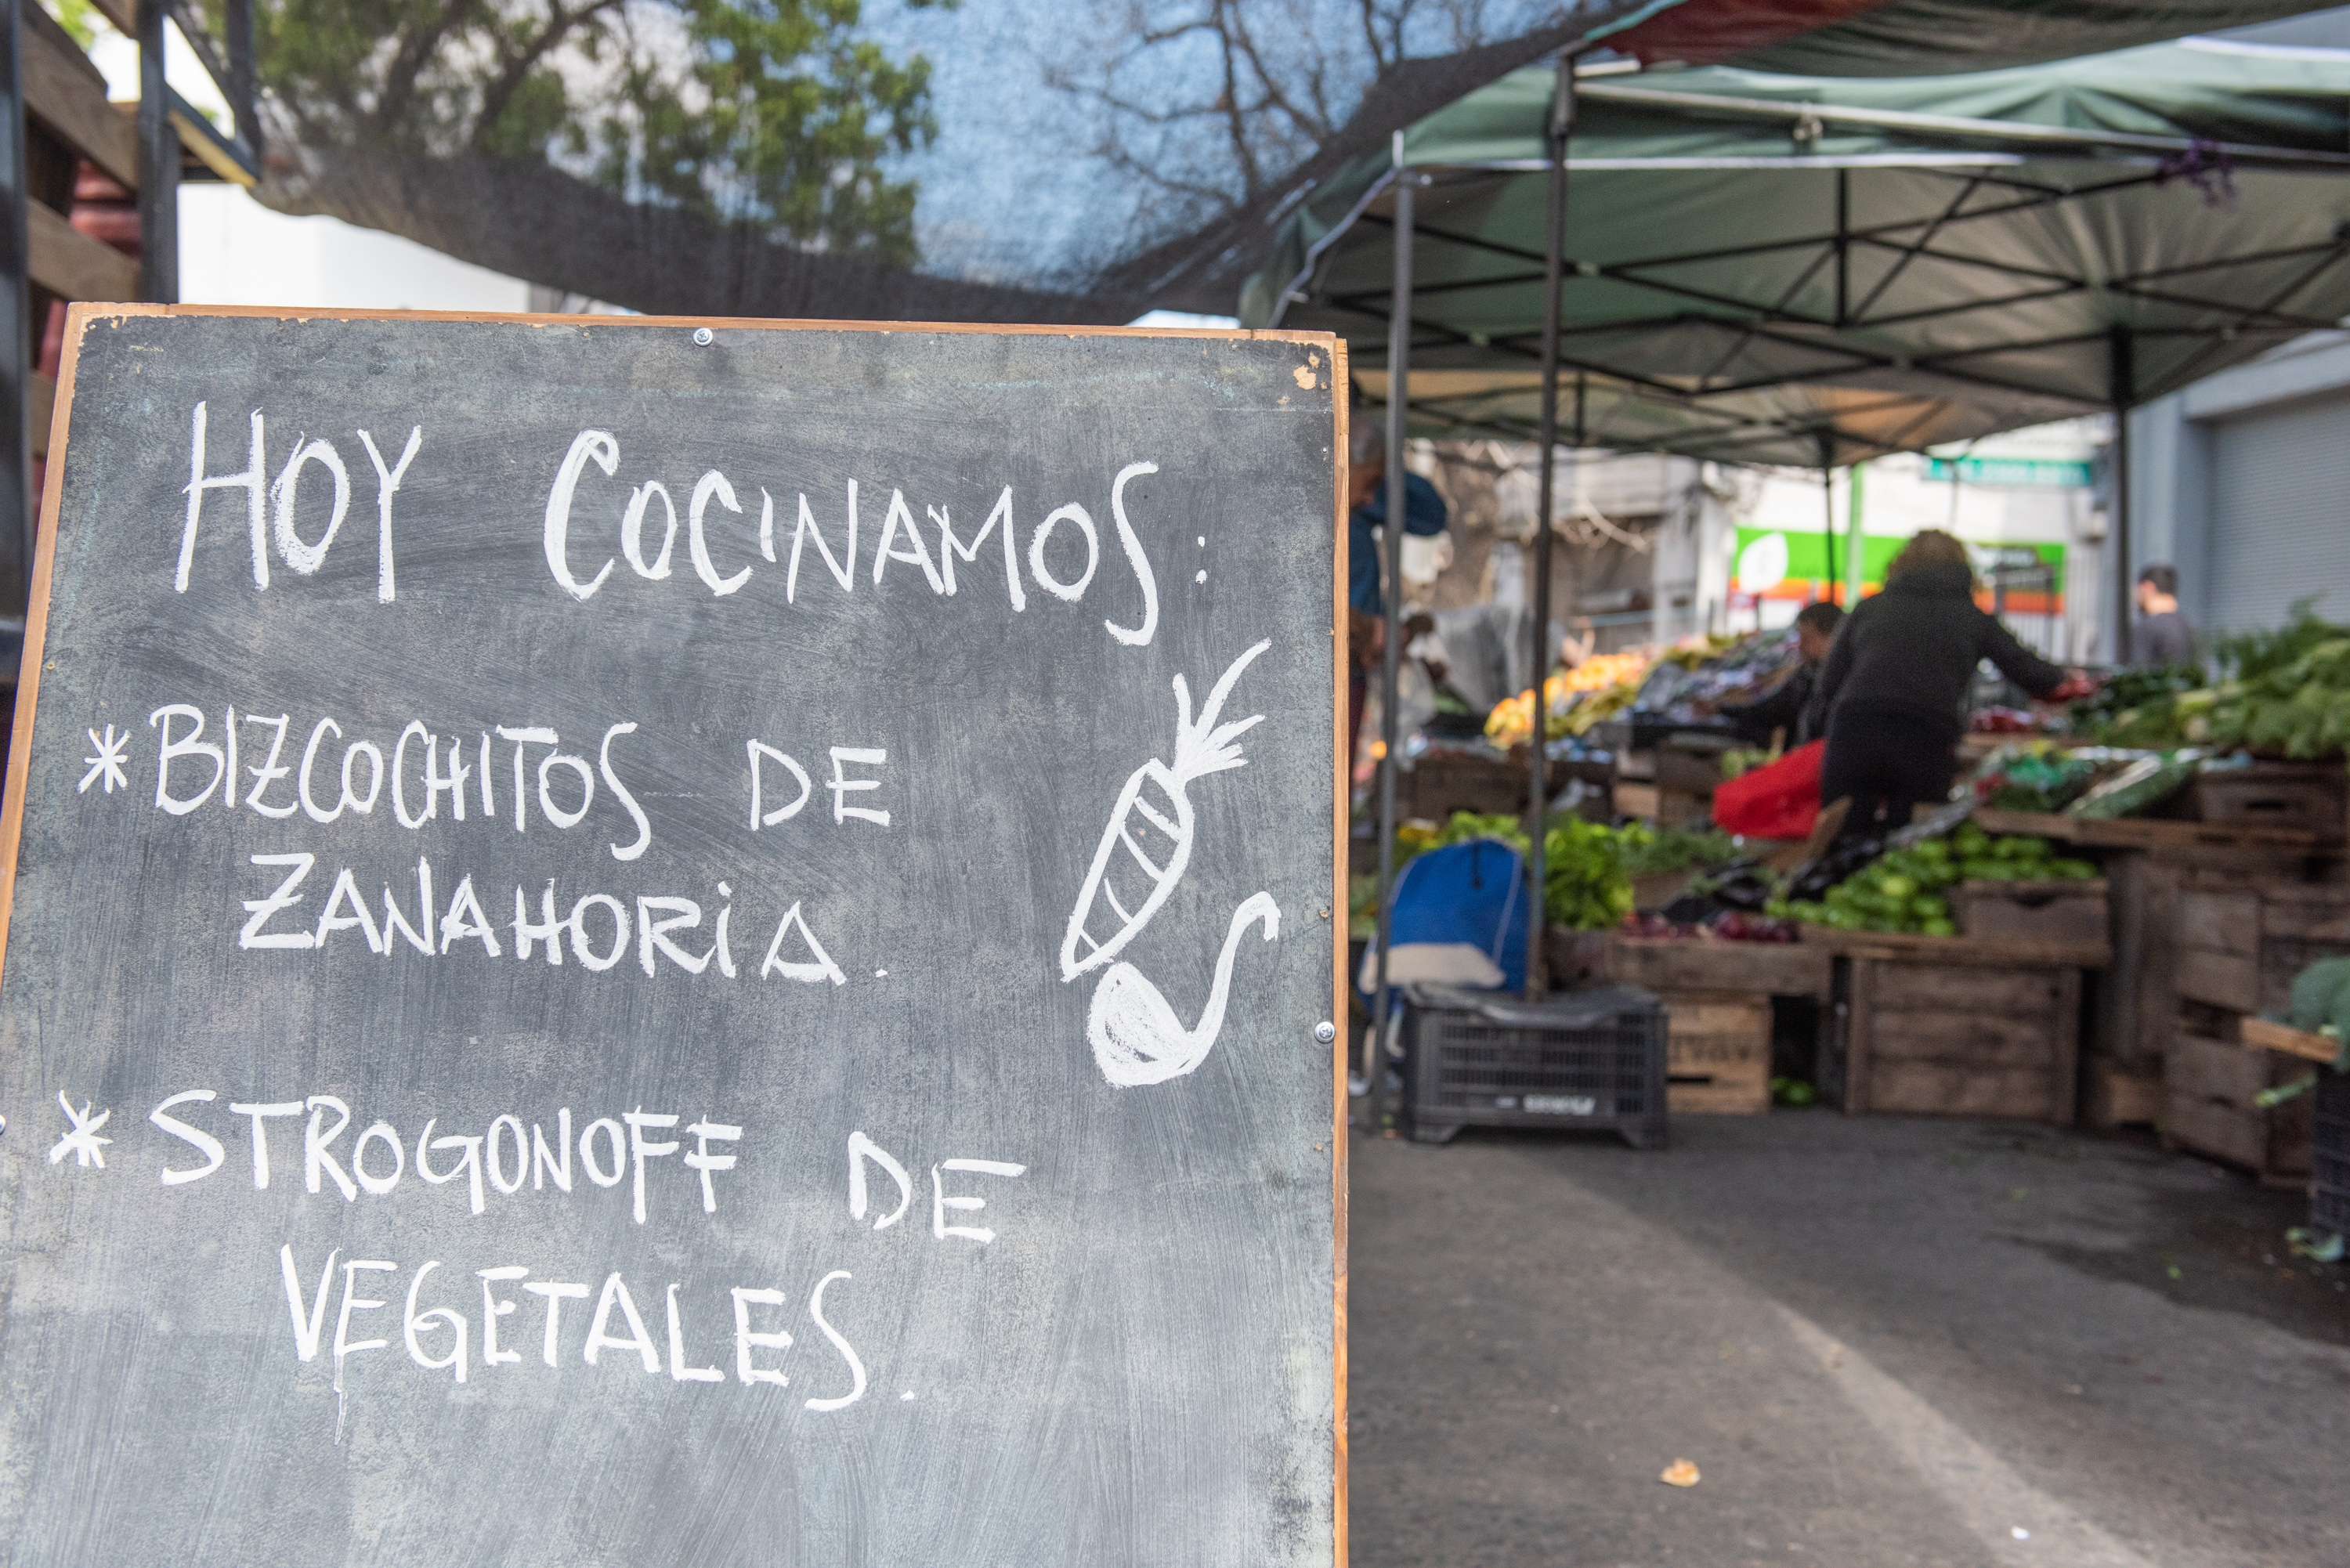 HOY COCINAMOS:
*BIZCOCHITOS DE
ZANAHORIA.
* STROGONOFF DE
VEGETALES.